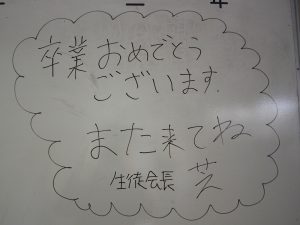 卒業おめでとう
ございます.
また来てね
生徒会長